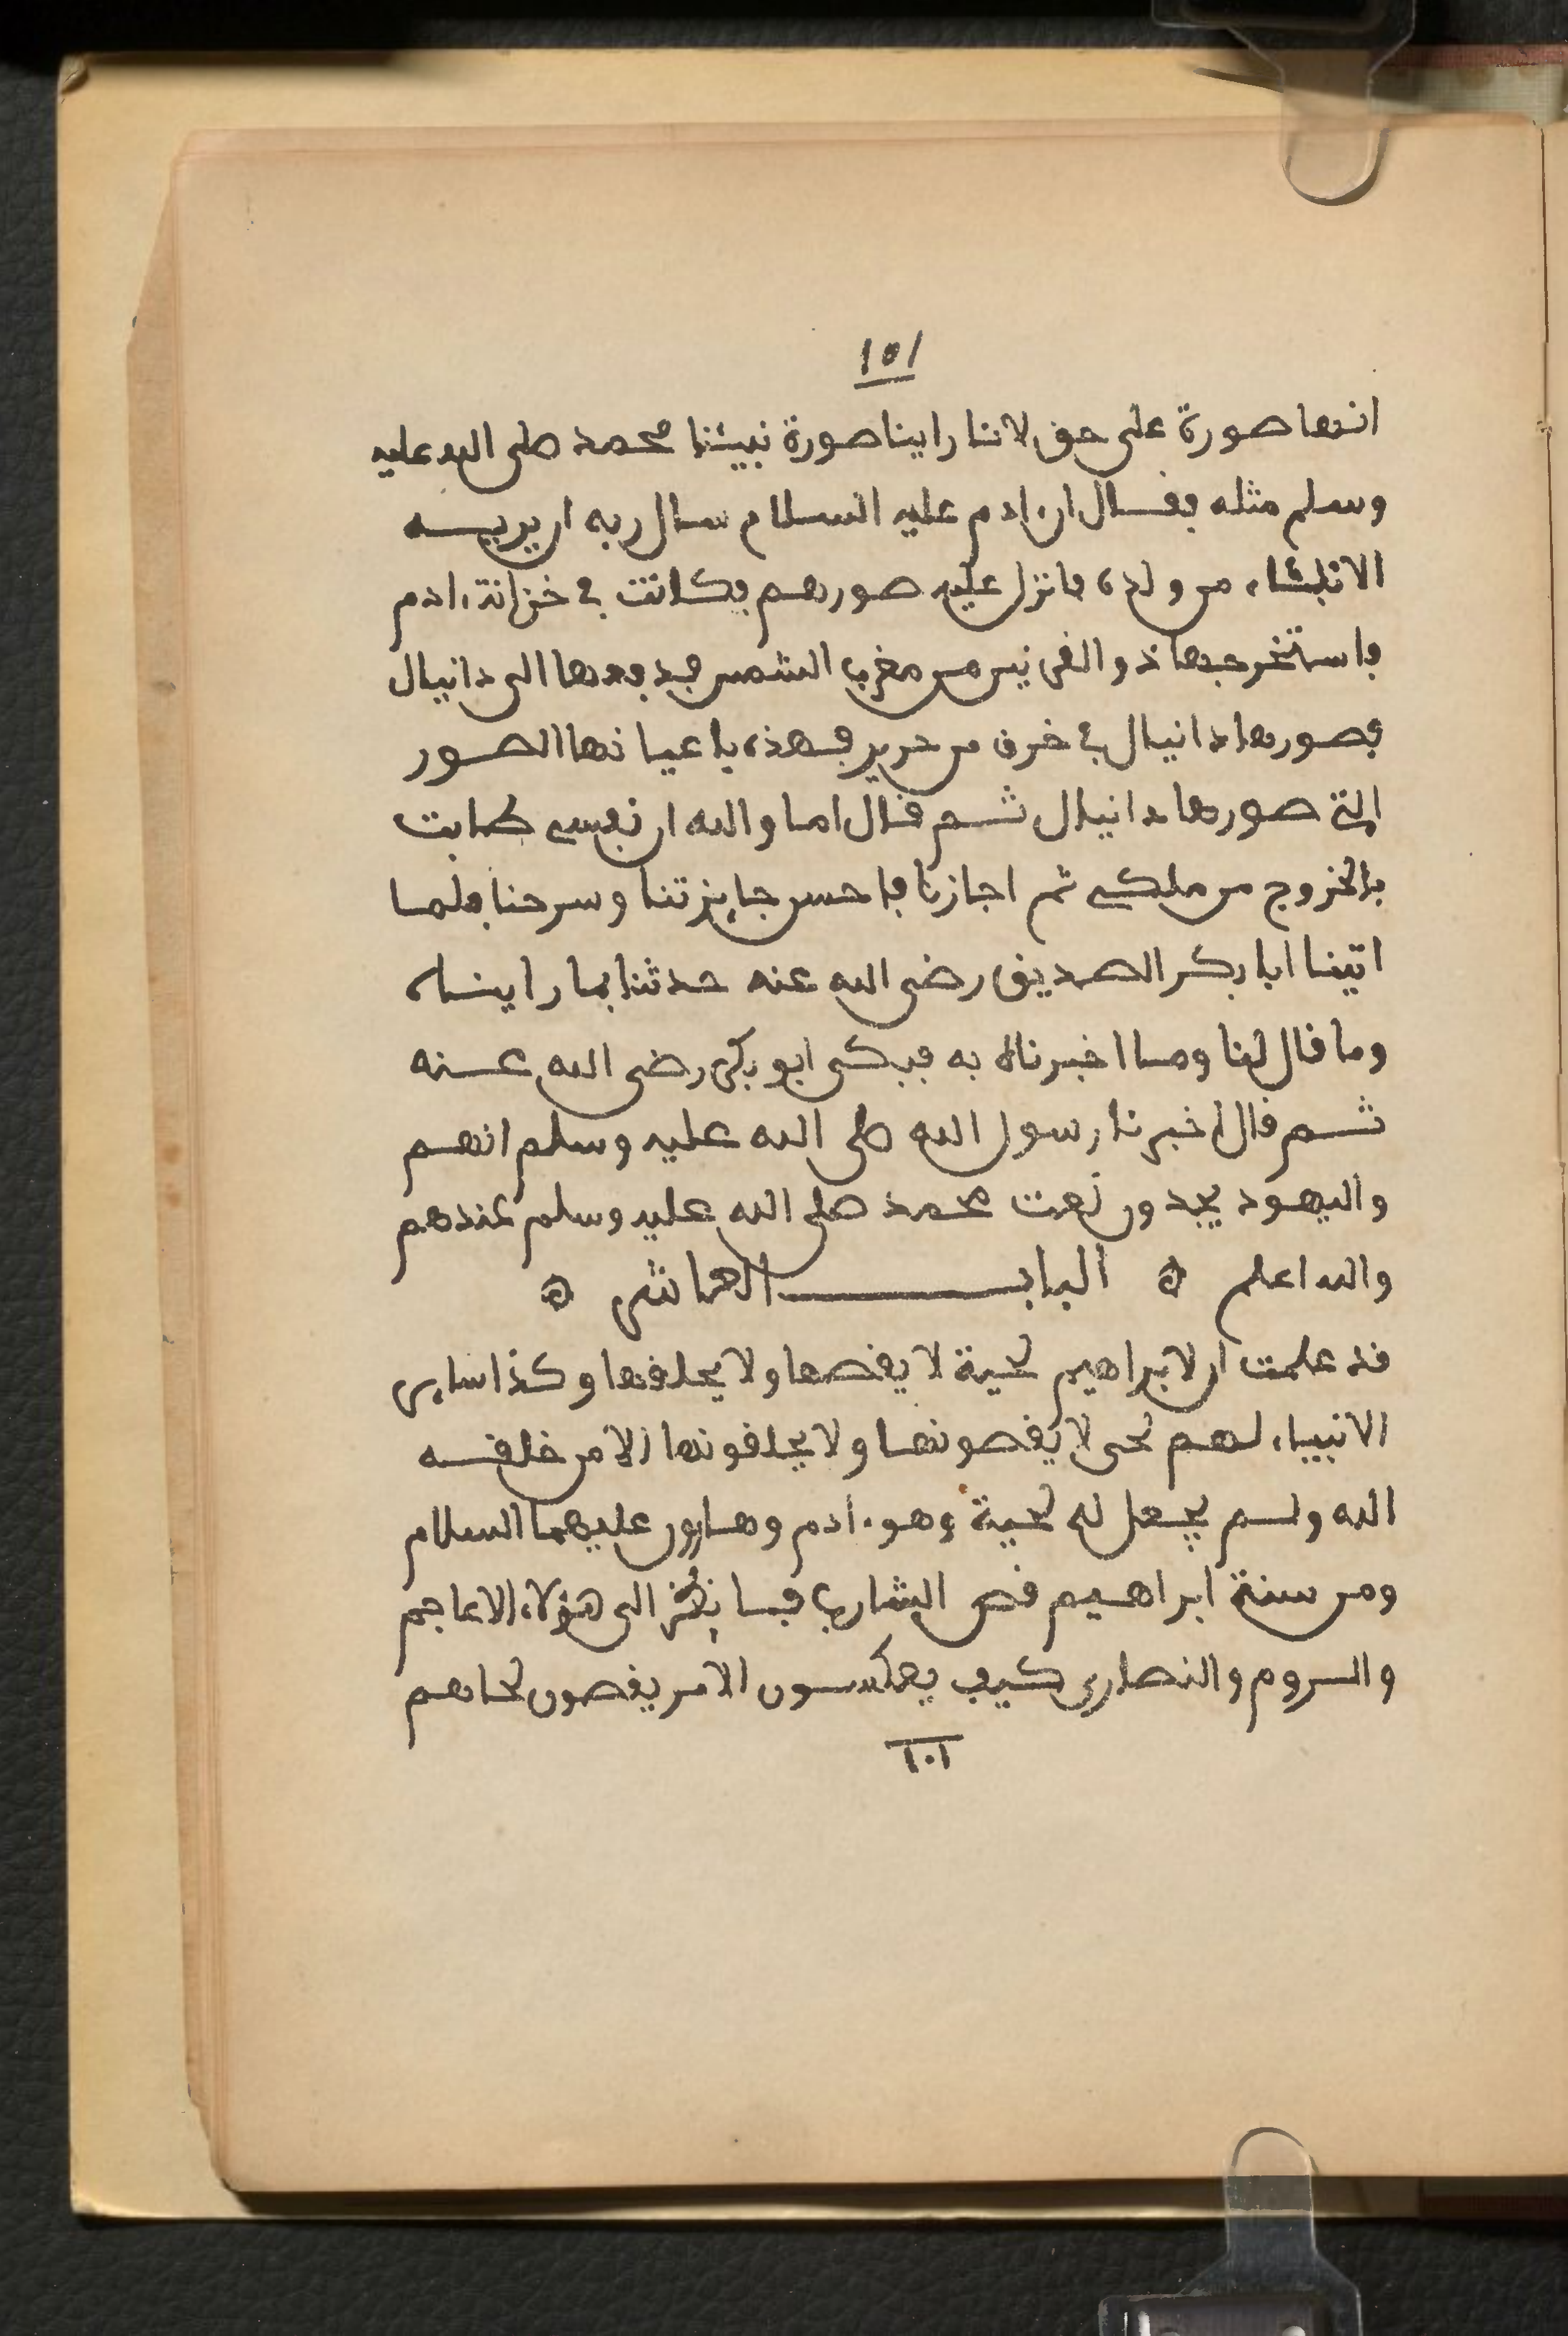 ١٥١
انها صورة على حق لاننا راينا صورة نبيئنا محمد صلى الله عليه
وسلم مثله فقال ان ادم عليه السلام سال ربه ان يريه
الانبئاء من ولده فانزل عليه صورهم فكانت في خزانة ادم
فاستخرجها ذو القرنين من مغرب الشمس فدفعها الى دانيال
فصورها دانيال في خرق من حرير فهذه باعيانها الصور
التي صورها دانيال ثم قال اما والله ان نفسي طابت
بالخروج من ملكي ثم اجازنا فاحسن جايزتنا وسرحنا فلما
اتينا ابا بكر الصديق رضى الله عنه حدثنا بما رايناه
وما قال لنا وما اخبرناه به فبكى ابو بكر رضى الله عنه
ثم قال اخبرنا رسول الله صلى الله عليه وسلم انهم
واليهود يجدون نعت محمد صلى الله عليه وسلم عندهم
والله اعلم ۞ الباب العاشر ۞
قد علمت ان لابراهيم لحية لا يقصها ولا يحلقها وكذا ساير
الانبياء لهم لحى لا يقصونها ولا يحلقونها الا من خلقه
الله ولم يجعل له لحية وهو ادم وهارون عليهما السلام
ومن سنة ابراهيم قص الشارب فانظر الى هؤلاء الاعاجم
والروم والنصارى كيف يعكسون الامر يقصون لحاهم
١٠١